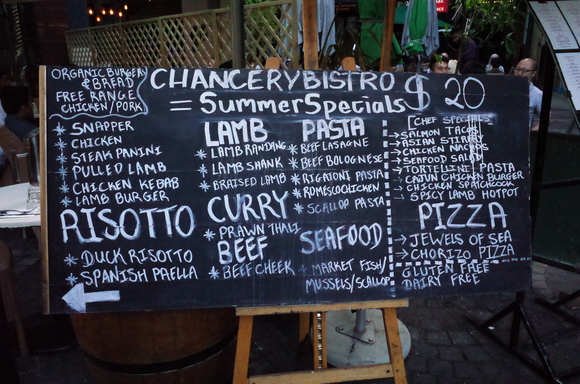 ORGANIC BURGERS
& BREAD
FREE RANGE
CHICKEN/PORK
CHANCERY BISTRO $ 20
= Summer Specials
* SNAPPER
* CHICKEN
* STEAK PANINI
* PULLED LAMB
* CHICKEN KEBAB
* LAMB BURGER
RISOTTO
* DUCK RISOTTO
* SPANISH PAELLA
LAMB
* LAMB RANDANG
* LAMB SHANK
* BRAISED LAMB
CURRY
* PRAWN THAI
BEEF
* BEEF CHEEK
PASTA
* BEEF LASAGNE
* BEEF BOLOGNESE
* RIGATONI PASTA
* ROMESCO CHICKEN
* SCALLOP PASTA
SEAFOOD
* MARKET FISH/
MUSSELS/SCALLOP
CHEF SPECIALS
→ SALMON TACOS
→ ASIAN STIRFRY
→ CHICKEN NACHOS
→ SEAFOOD SALAD
→ TORTELLINI PASTA
→ CAJUN CHICKEN BURGER
→ CHICKEN SPATCHCOCK
→ SPICY LAMB HOTPOT
PIZZA
→ JEWELS OF SEA
→ CHORIZO PIZZA
GLUTEN FREE
DAIRY FREE